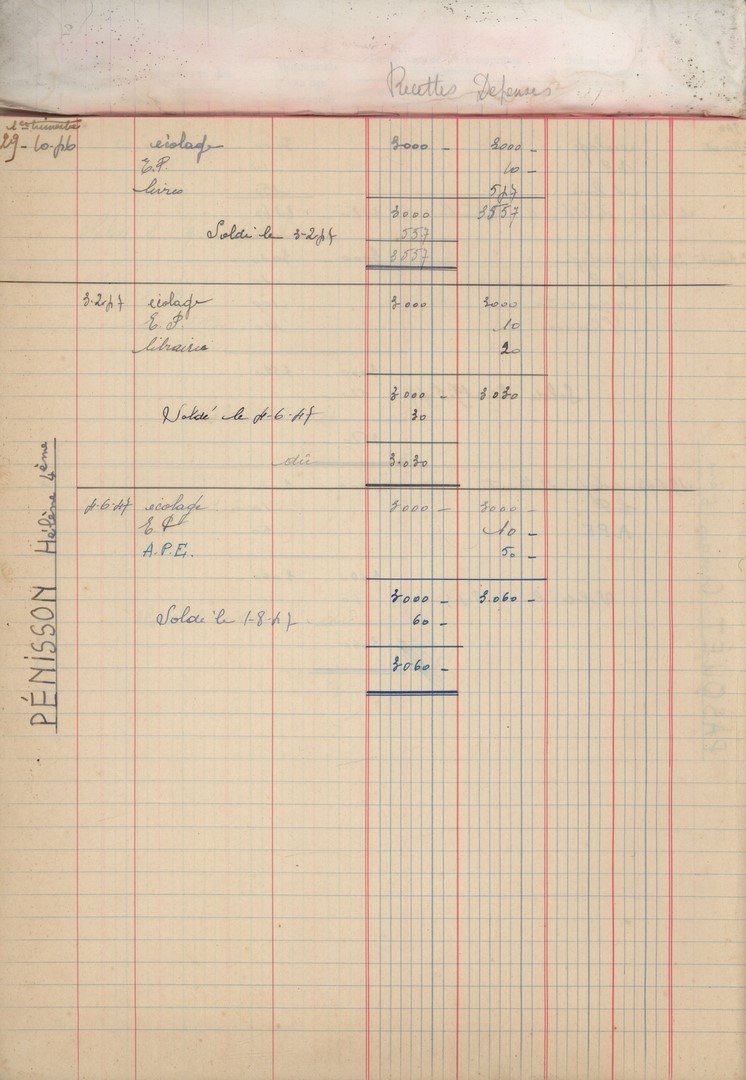 Recettes Dépenses
1er trimestre
29-10-46 écolage 3000 3000 -
E.P. 10 -
livres 547
3000 3557
Soldé le 3-2-47 557
3557
3-2-47 écolage 3000 3000
E.P. 10
librairie 20
3000 - 3.030
Soldé le 4-6-47 30
dû 3.030
4-6-47 écolage 3000 - 3000 -
E.P 10 -
A.P.E. 50 -
3000 - 3.060 -
Soldé le 1-8-47 60 -
3060 -
PÉNISSON Hélène 4ème